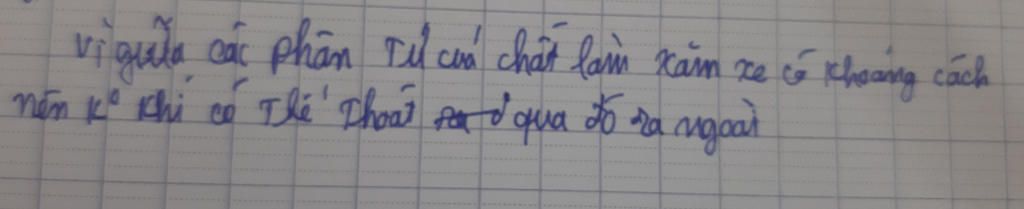 vì giữa các phân tử của chất làm xăm xe có khoảng cách
nên k° khí có thể thoát qua đó ra ngoài